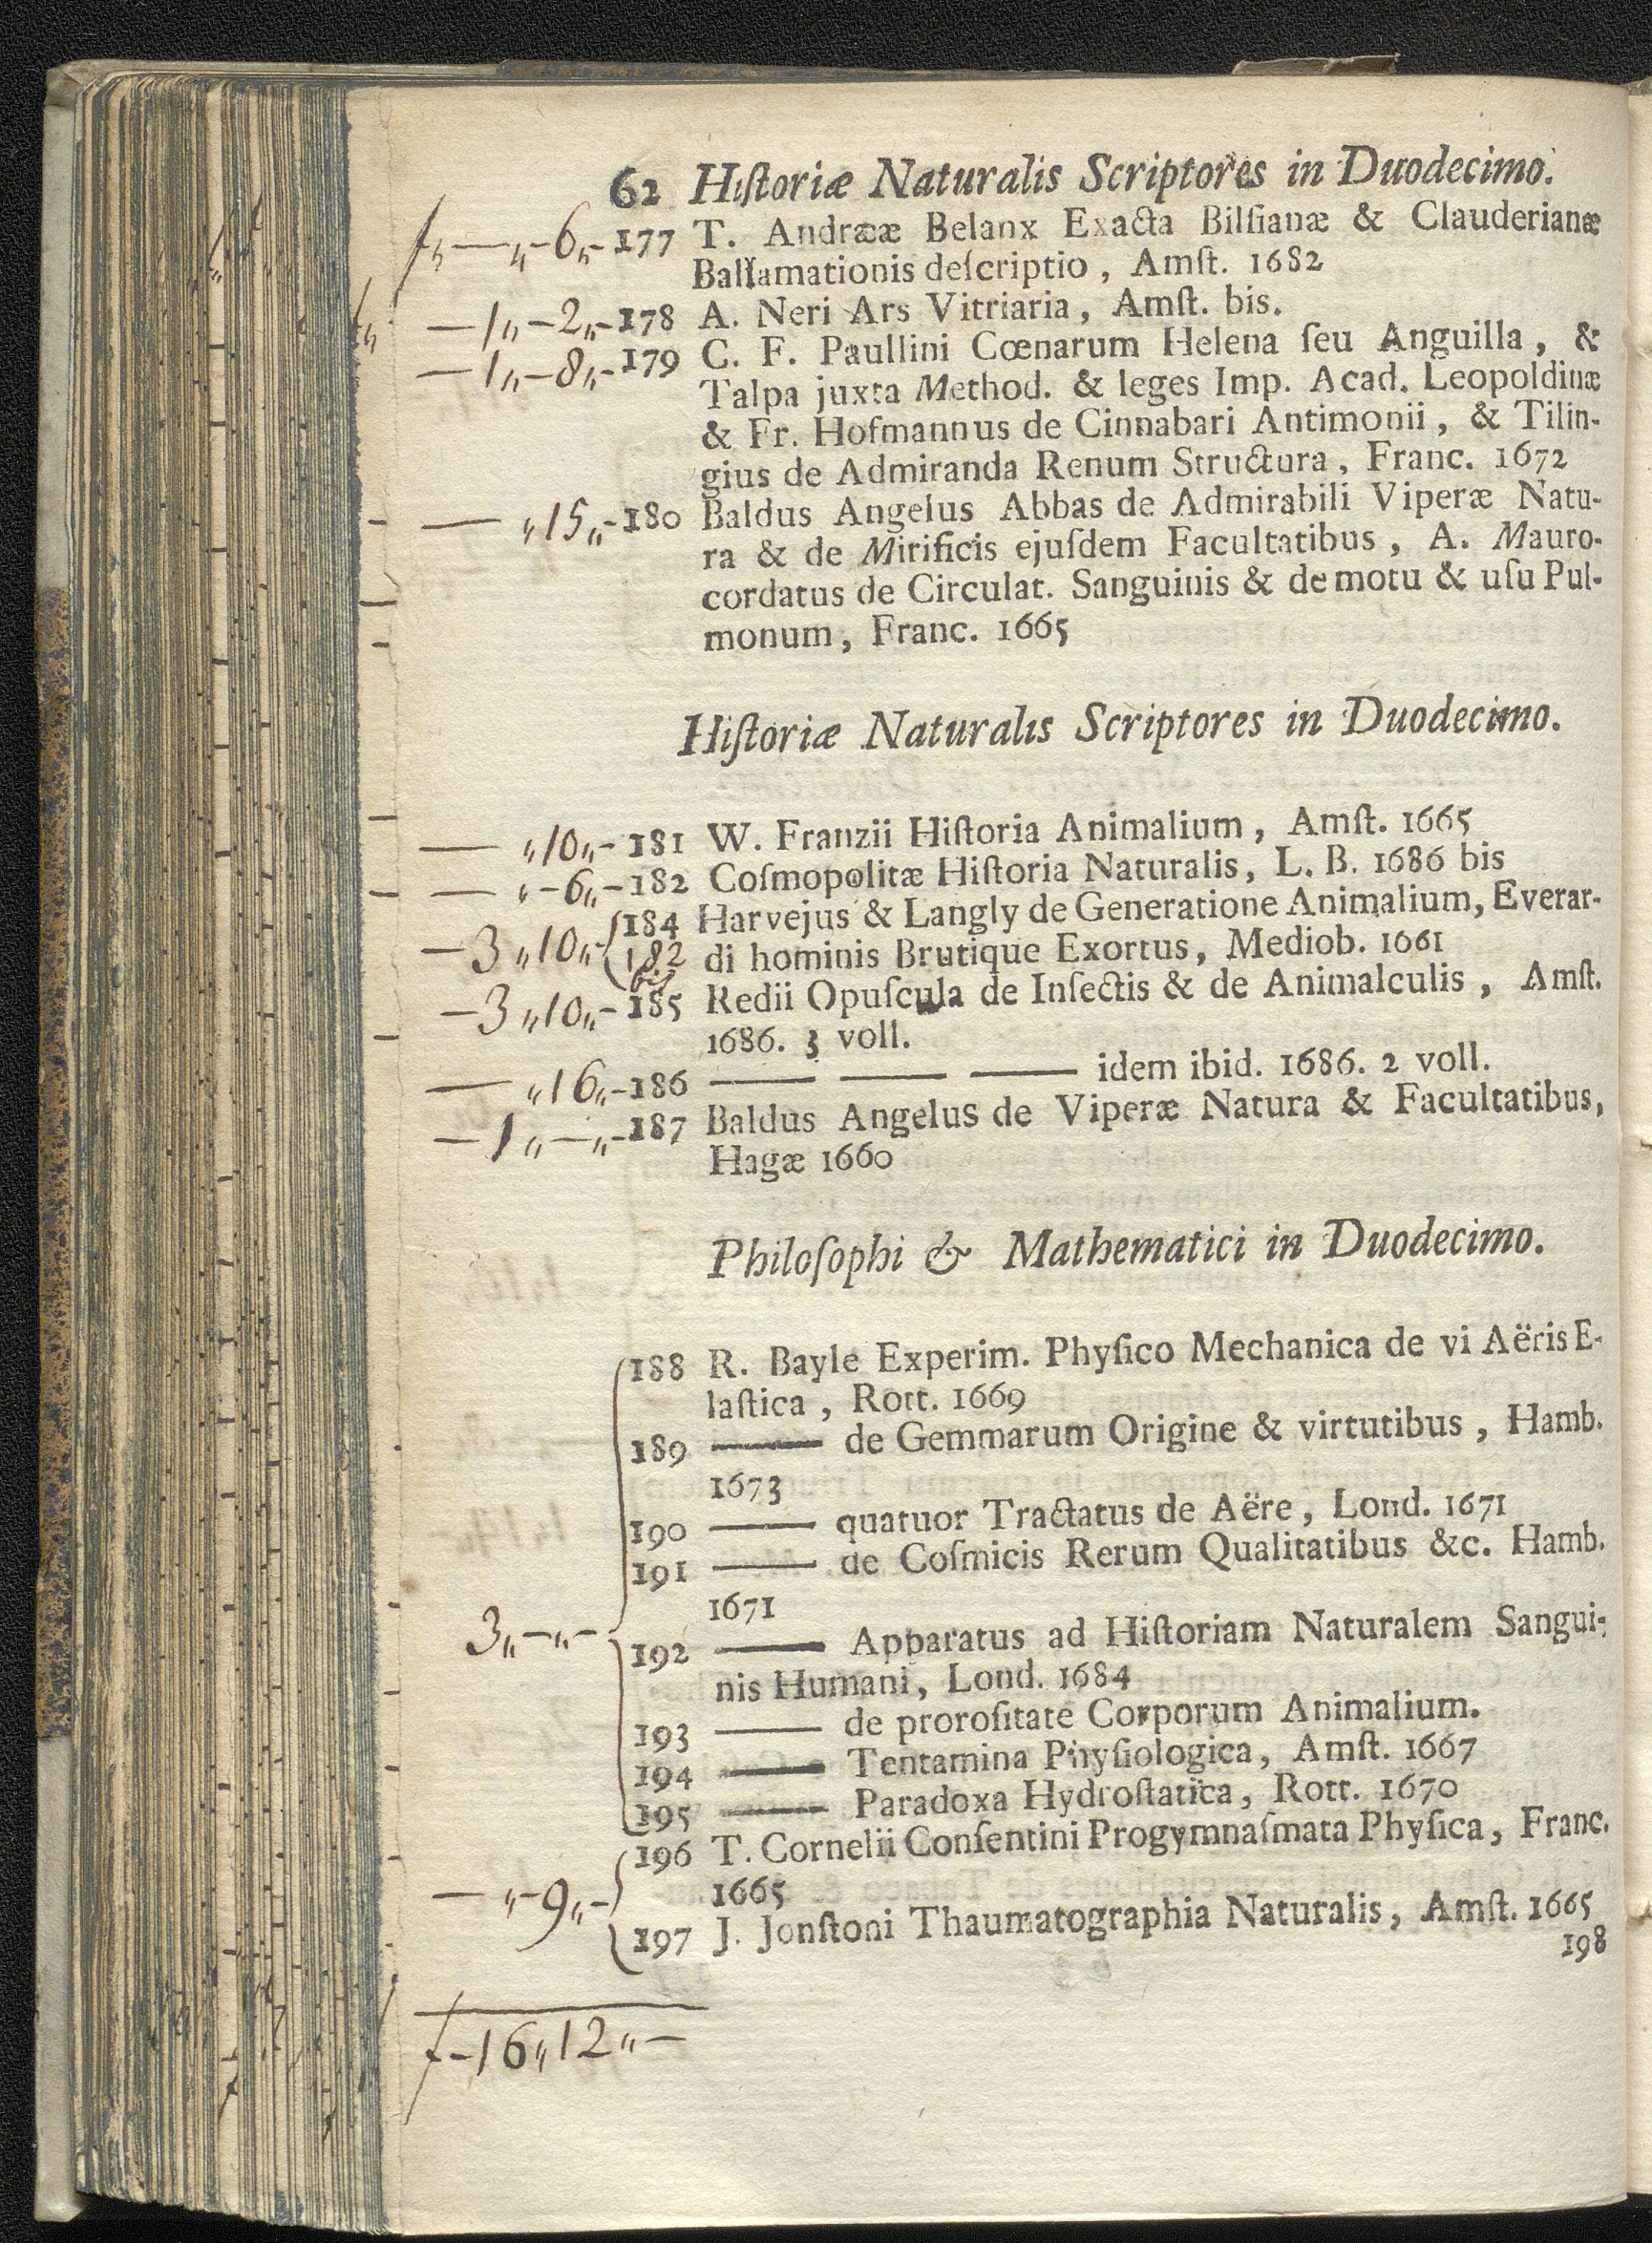 62 Hiſtoriæ Naturalis Scriptores in Duodecimo.
ƒ"—"-6"-177 T. Andrææ Belanx Exacta Bilſianæ & Clauderianæ
Balſamationis deſcriptio, Amſt. 1682
—1"-2"-178 A. Neri Ars Vitriaria, Amſt. bis.
—1"-8"-179 C. F. Paullini Cœnarum Helena ſeu Anguilla, &
Talpa juxta Method. & leges Imp. Acad. Leopoldinæ
& Fr. Hofmannus de Cinnabari Antimonii, & Tilin-
gius de Admiranda Renum Structura, Franc. 1672
— "15"-180 Baldus Angelus Abbas de Admirabili Viperæ Natu-
ra & de Mirificis ejuſdem Facultatibus, A. Mauro-
cordatus de Circulat. Sanguinis & de motu & uſu Pul-
monum, Franc. 1665
Hiſtoriæ Naturalis Scriptores in Duodecimo.
— "10"-181 W. Franzii Hiſtoria Animalium, Amſt. 1665
— "-6"-182 Coſmopolitæ Hiſtoria Naturalis, L. B. 1686 bis
184 Harvejus & Langly de Generatione Animalium, Everar-
—3"10"- 182 di hominis Brutique Exortus, Mediob. 1661
bis
—3"10"-185 Redii Opuſcula de Inſectis & de Animalculis, Amſt.
1686. 3 voll.
— "16"-186 ——— ——— ——— idem ibid. 1686. 2 voll.
—1"—"-187 Baldus Angelus de Viperæ Natura & Facultatibus,
Hagæ 1660
Philoſophi & Mathematici in Duodecimo.
188 R. Bayle Experim. Phyſico Mechanica de vi Aëris E-
laſtica, Rott. 1669
189 ——— de Gemmarum Origine & virtutibus, Hamb.
1673
190 ——— quatuor Tractatus de Aëre, Lond. 1671
191 ——— de Coſmicis Rerum Qualitatibus &c. Hamb.
1671
3"-"- 192 ——— Apparatus ad Hiſtoriam Naturalem Sangui-
nis Humani, Lond. 1684
193 ——— de proroſitate Corporum Animalium.
194 ——— Tentamina Phyſiologica, Amſt. 1667
195 ——— Paradoxa Hydroſtatica, Rott. 1670
196 T. Cornelii Conſentini Progymnaſmata Phyſica, Franc.
— "-9"- 1665
197 J. Jonſtoni Thaumatographia Naturalis, Amſt. 1665
198
ƒ-16"12"-